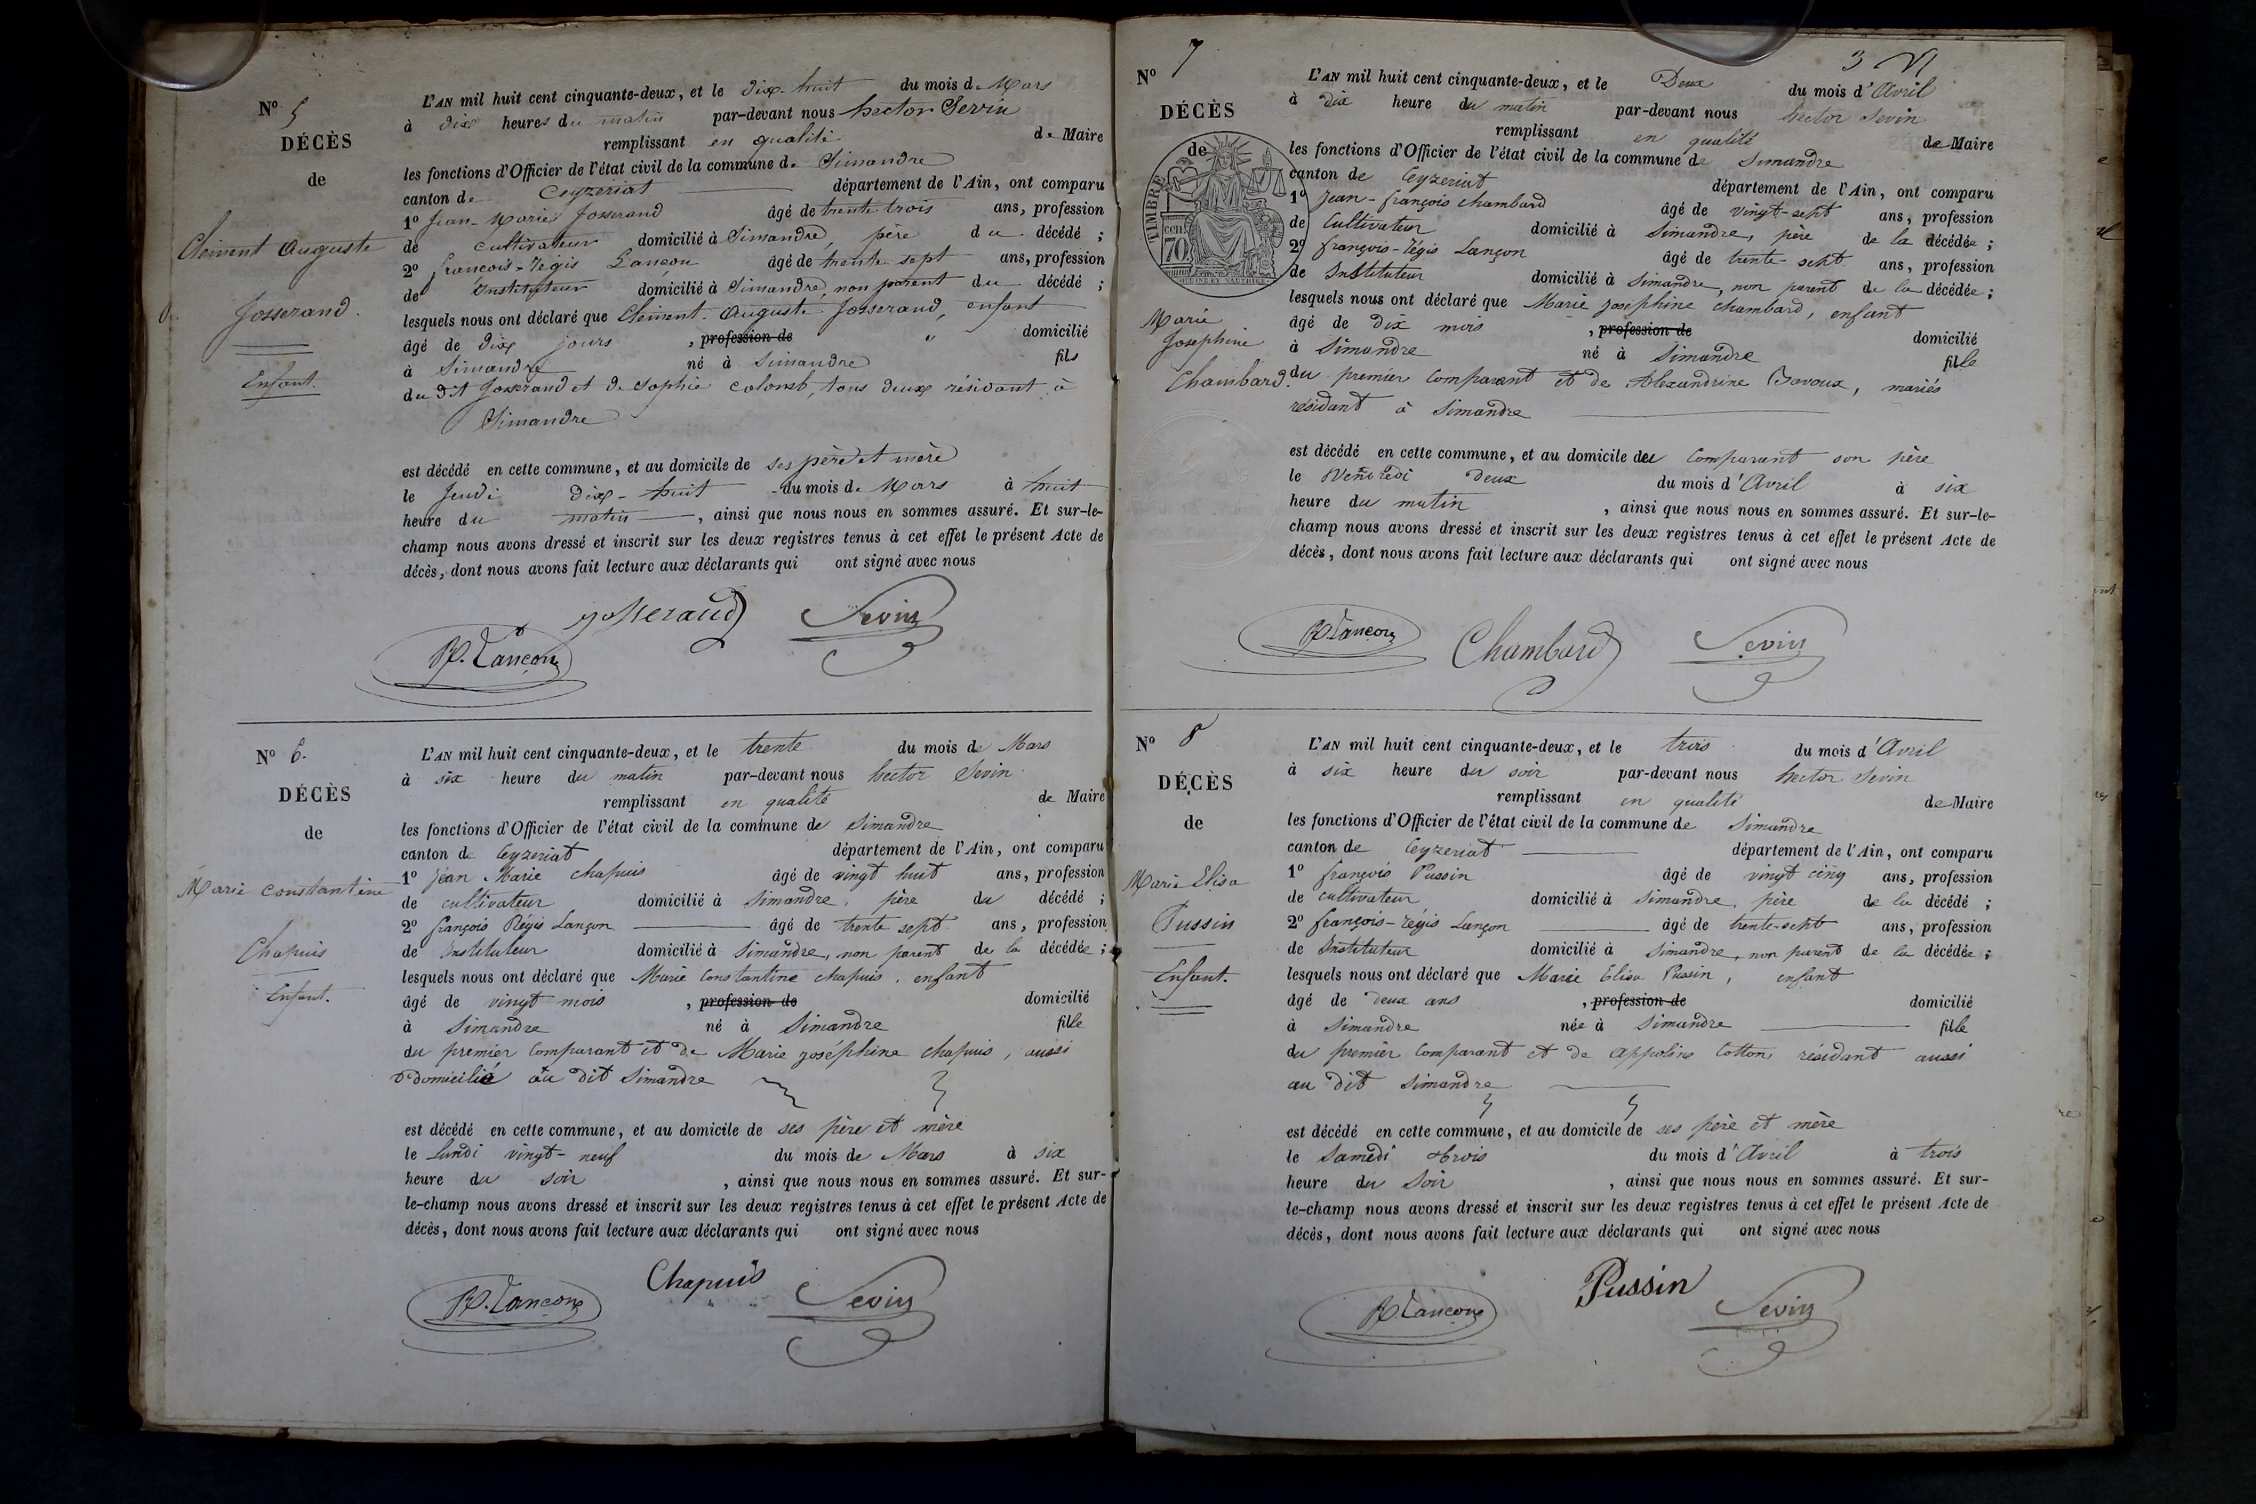 N° 5
DÉCÈS
de
Clément Auguste
Josserand.
Enfant.
L'AN mil huit cent cinquante-deux, et le dix-huit du mois de Mars
à dix heures du matin par-devant nous hector Sevin
remplissant en qualité de Maire
les fonctions d'Officier de l'état civil de la commune de Simandre
canton de Ceyzeriat département de l'Ain, ont comparu
1° Jean-Marie Josserand âgé de trente trois ans, profession
de cultivateur domicilié à Simandre, père du décédé ;
2° françois-régis Lançon âgé de trente sept ans, profession
de Instituteur domicilié à Simandre, non parent du décédé ;
lesquels nous ont déclaré que Clément-Auguste Josserand, enfant
âgé de dix jours , profession de " domicilié
à Simandre né à Simandre fils
du dit Josserand et de Sophie colomb, tous deux résidant à
Simandre
est décédé en cette commune, et au domicile de ses père et mère
le Jeudi dix-huit du mois de Mars à huit
heure du matin , ainsi que nous nous en sommes assuré. Et sur-le-
champ nous avons dressé et inscrit sur les deux registres tenus à cet effet le présent Acte de
décès, dont nous avons fait lecture aux déclarants qui ont signé avec nous
Josserand Sevin
R. Lançon
N° 6.
DÉCÈS
de
Marie constantine
Chapuis
Enfant.
L'AN mil huit cent cinquante-deux, et le trente du mois de Mars
à six heure du matin par-devant nous hector Sevin
remplissant en qualité de Maire
les fonctions d'Officier de l'état civil de la commune de Simandre
canton de Ceyzeriat département de l'Ain, ont comparu
1° Jean Marie chapuis âgé de vingt huit ans, profession
de cultivateur domicilié à Simandre, père du décédé ;
2° françois Régis Lançon âgé de trente sept ans, profession
de Instituteur domicilié à Simandre, non parent de la décédée ;
lesquels nous ont déclaré que Marie Constantine chapuis, enfant
âgé de vingt mois , profession de domicilié
à Simandre né à Simandre fille
du premier comparant et de Marie joséphine chapuis, aussi
domicilié au dit Simandre
est décédé en cette commune, et au domicile de ses père et mère
le Lundi vingt-neuf du mois de Mars à six
heure du soir , ainsi que nous nous en sommes assuré. Et sur-
le-champ nous avons dressé et inscrit sur les deux registres tenus à cet effet le présent Acte de
décès, dont nous avons fait lecture aux déclarants qui ont signé avec nous
Chapuis
R. Lançon Sevin
3
N° 7
DÉCÈS
de
TIMBRE
cen.
70
Marie
Josephine
Chambard.
L'AN mil huit cent cinquante-deux, et le Deux du mois d'Avril
à dix heure du matin par-devant nous hector Sevin
remplissant en qualité de Maire
les fonctions d'Officier de l'état civil de la commune de Simandre
canton de Ceyzeriat département de l'Ain, ont comparu
1° Jean-françois chambard âgé de vingt-sept ans, profession
de Cultivateur domicilié à Simandre, père de la décédée ;
2° françois-régis Lançon âgé de trente-sept ans, profession
de Instituteur domicilié à Simandre, non parent de la décédée ;
lesquels nous ont déclaré que Marie Josephine chambard, enfant
âgé de dix mois , profession de domicilié
à Simandre né à Simandre fille
du premier comparant et de Alexandrine Bavoux, mariés
résidant à Simandre
est décédé en cette commune, et au domicile du comparant son père
le Vendredi deux du mois d'Avril à six
heure du matin , ainsi que nous nous en sommes assuré. Et sur-le-
champ nous avons dressé et inscrit sur les deux registres tenus à cet effet le présent Acte de
décès, dont nous avons fait lecture aux déclarants qui ont signé avec nous
R Lançon Chambard Sevin
N° 8
DÉCÈS
de
Marie Elisa
Pussin
Enfant.
L'AN mil huit cent cinquante-deux, et le trois du mois d'Avril
à six heure du soir par-devant nous hector Sevin
remplissant en qualité de Maire
les fonctions d'Officier de l'état civil de la commune de Simandre
canton de Ceyzeriat département de l'Ain, ont comparu
1° françois Pussin âgé de vingt cinq ans, profession
de cultivateur domicilié à Simandre, père de la décédé ;
2° françois-régis Lançon âgé de trente-sept ans, profession
de Instituteur domicilié à Simandre, non parent de la décédée ;
lesquels nous ont déclaré que Marie Elisa Pussin, enfant
âgé de deux ans , profession de domicilié
à Simandre née à Simandre fille
du premier comparant et de Appoline Cotton résidant aussi
au dit Simandre
est décédé en cette commune, et au domicile de ses père et mère
le Samedi trois du mois d'Avril à trois
heure du Soir , ainsi que nous nous en sommes assuré. Et sur-
le-champ nous avons dressé et inscrit sur les deux registres tenus à cet effet le présent Acte de
décès, dont nous avons fait lecture aux déclarants qui ont signé avec nous
Pussin
R Lançon Sevin